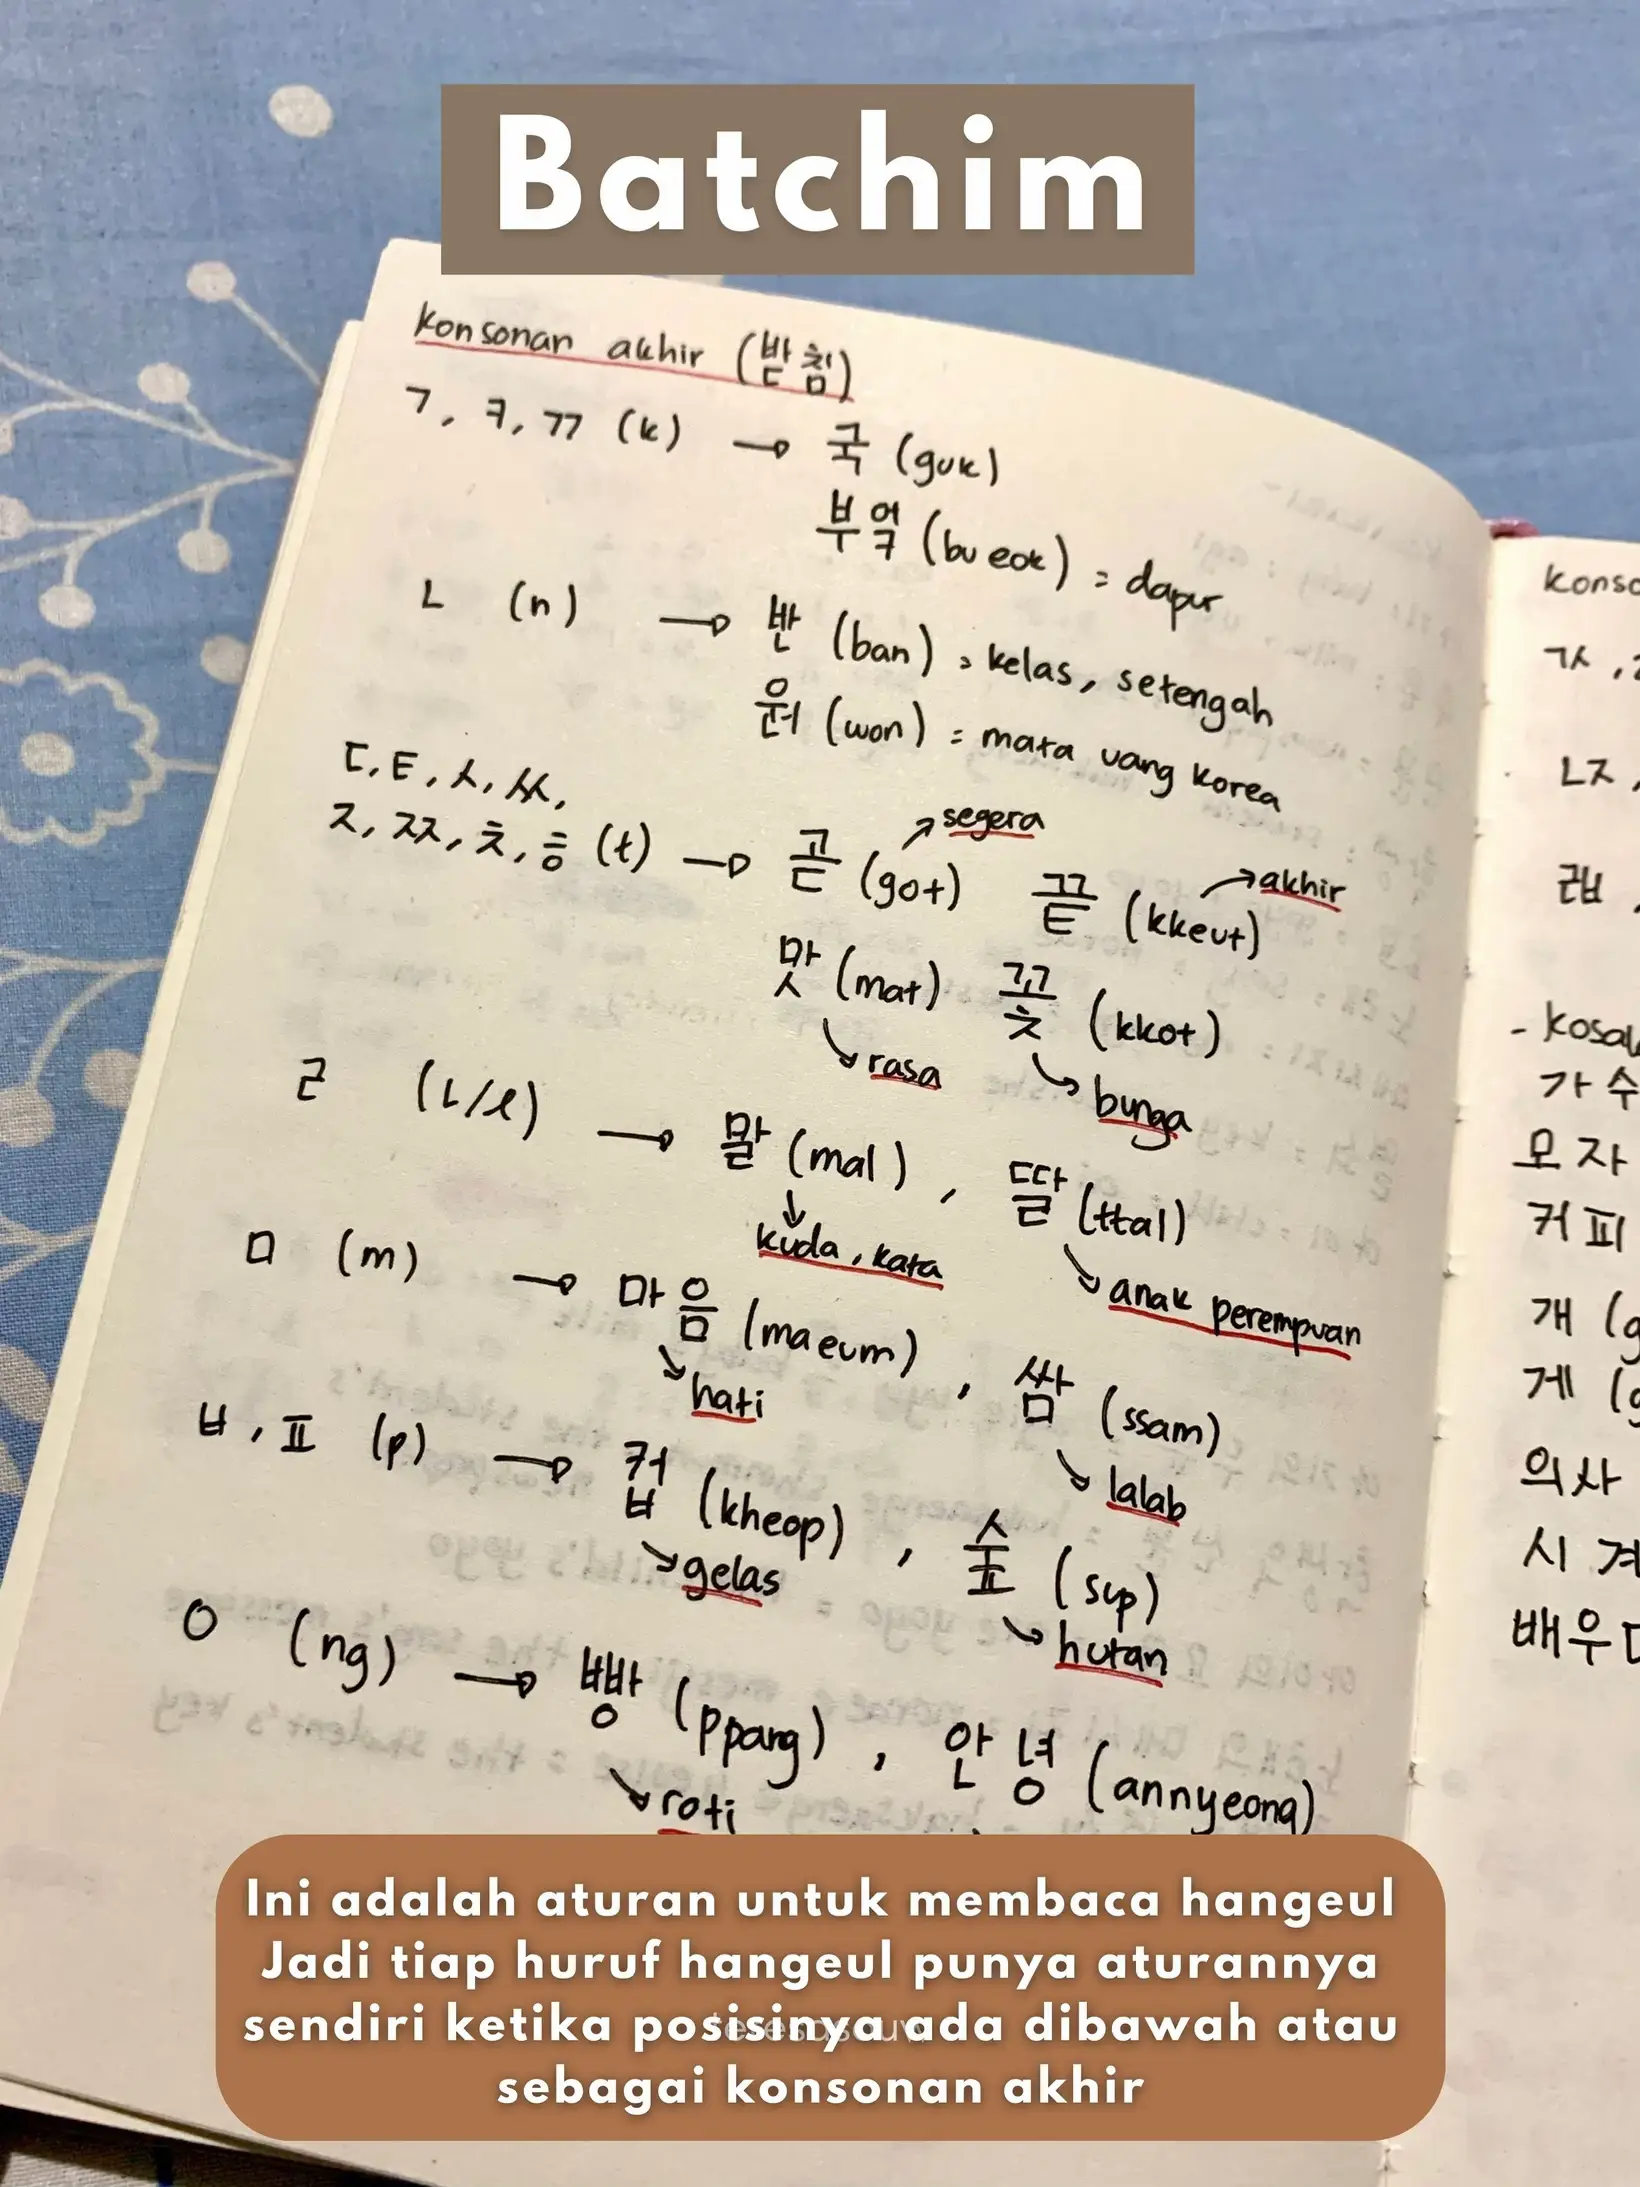 Batchim
konsonan akhir (받침)
ㄱ, ㅋ, ㄲ (k) → 국 (guk)
부엌 (bu eok) = dapur
ㄴ (n) → 반 (ban) = kelas, setengah
원 (won) = mata uang korea
ㄷ, ㅌ, ㅅ, ㅆ,
ㅈ, ㅉ, ㅊ, ㅎ (t) → 곧 (got) → segera 끝 (kkeut) → akhir
맛 (mat) → rasa 꽃 (kkot) → bunga
ㄹ (L/l) → 말 (mal), 딸 (ttal)
kuda, kata
anak perempuan
ㅁ (m) → 마음 (maeum), 쌈 (ssam)
hati
lalab
ㅂ, ㅍ (p) → 컵 (kheop), 숲 (sup)
gelas
hutan
ㅇ (ng) → 빵 (ppang), 안녕 (annyeong)
roti
ㄱㅅ,
ㄴㅈ,
ㄹㅂ,
가수
모자
커피
개 (g
게 (g
의사
시계
배우
Ini adalah aturan untuk membaca hangeul
Jadi tiap huruf hangeul punya aturannya
sendiri ketika posisinya ada dibawah atau
sebagai konsonan akhir